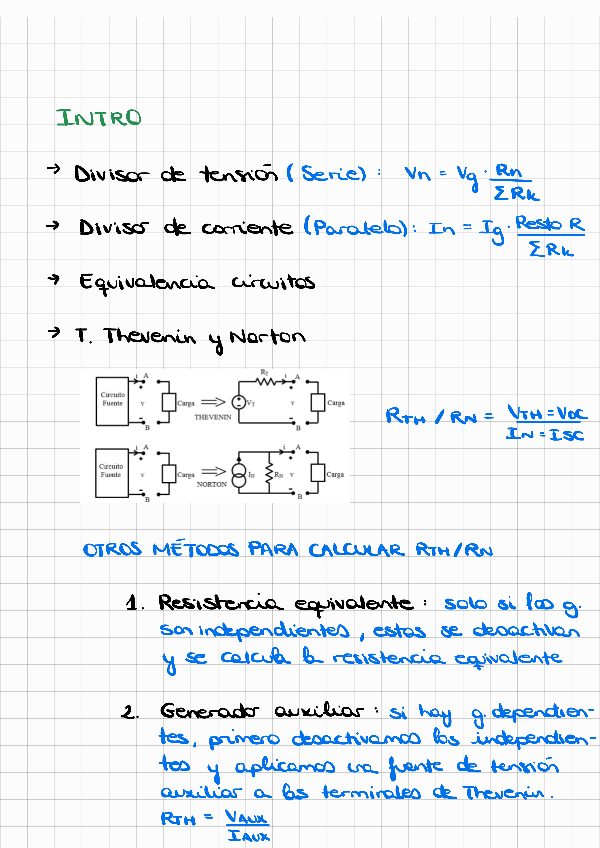 INTRO
→ Divisor de tensión (Serie): Vn = Vg · Rn / ΣRk
→ Divisor de corriente (Paralelo): In = Ig · Resto R / ΣRk
→ Equivalencia circuitos
→ T. Thevenin y Norton
Circuito Fuente i A + v - B Carga THEVENIN RT VT i A + v - B Carga
Circuito Fuente i A + v - B Carga NORTON IN RN i A + v - B Carga
RTH / RN = VTH = VOC / IN = ISC
OTROS MÉTODOS PARA CALCULAR RTH/RN
1. Resistencia equivalente: solo si los g.
son independientes, estos se desactivan
y se calcula la resistencia equivalente
2. Generador auxiliar: si hay g. dependien-
tes, primero desactivamos los independien-
tes y aplicamos una fuente de tensión
auxiliar a los terminales de Thevenin.
RTH = VAUX / IAUX